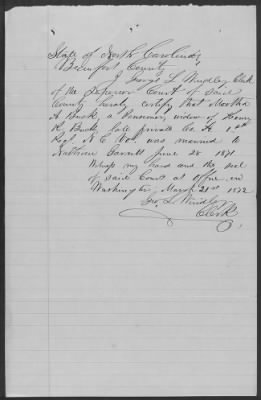 State of North Carolina
Beaufort County
I George L Windley Clerk
of the Superior Court of said
County hereby certify that Martha
A Buck a Pensioner, widow of Henry
H, Buck, late private Co. 1st
Regt N. C. Vol. was married to
Nathan Carrell June 28 1871.
Witness my hand and the seal
of said Court at office in
Washington, March 21st 1872
Geo. L. Windley
Clerk